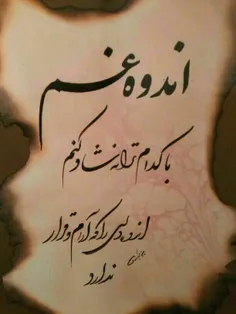 اندوه غم
با کدام ترانه شاد کنم
را که آرام و قرار
ندارد